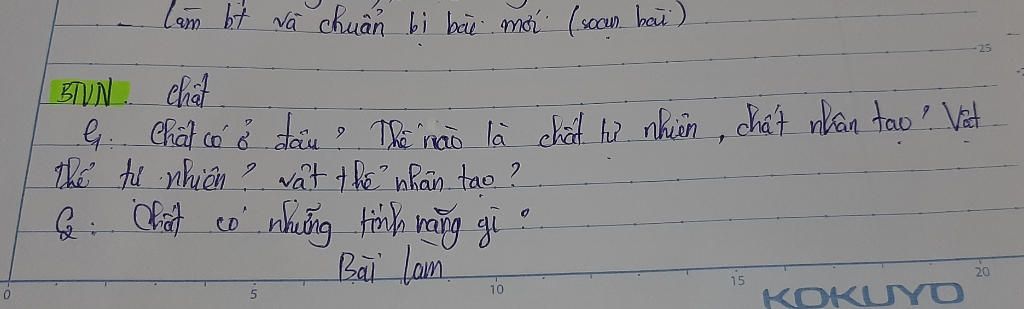 - Làm bt và chuẩn bị bài mới (soạn bài)
25
BTVN. Chất
C1: Chất có ở đâu? Thế nào là chất tự nhiên, chất nhân tạo? Vật
thể tự nhiên? vật thể nhân tạo?
C2: Chất có những tính năng gì?
Bài làm
0 5 10 15 20
KOKUYO